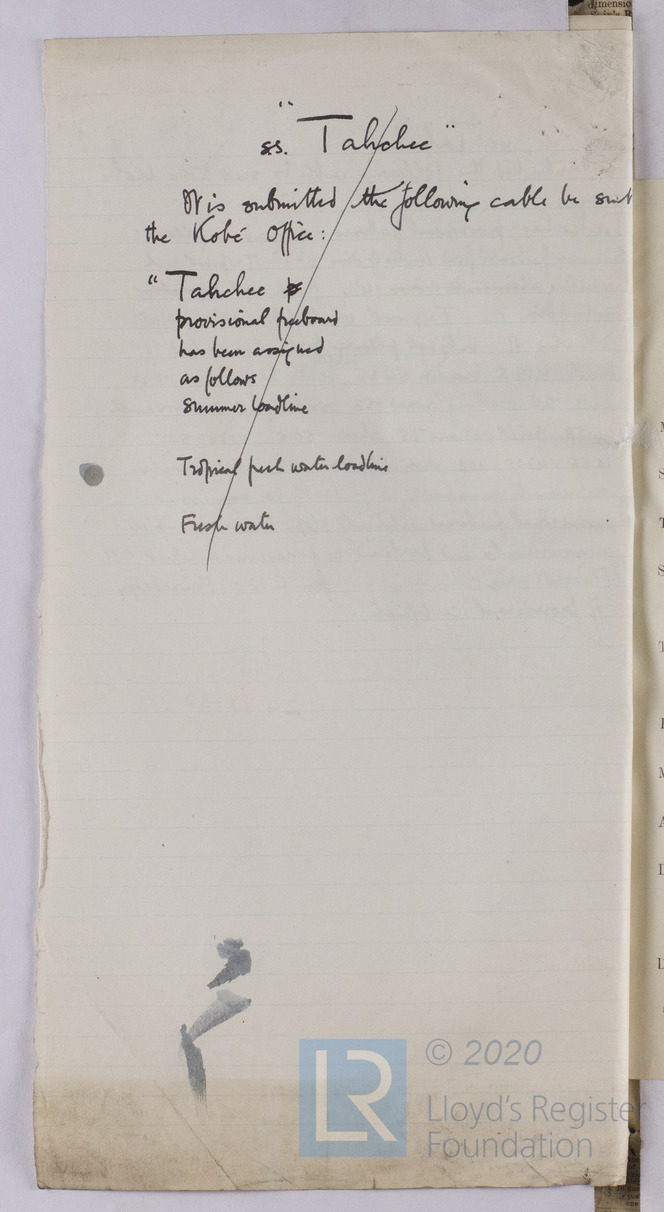 ss. "Tahchee"
It is submitted the following cable be sent
the Kobé Office:
"Tahchee
provisional freeboard
has been assigned
as follows
Summer loadline
Tropical fresh water loadline
Fresh water
LR
© 2020
Lloyd's Register
Foundation